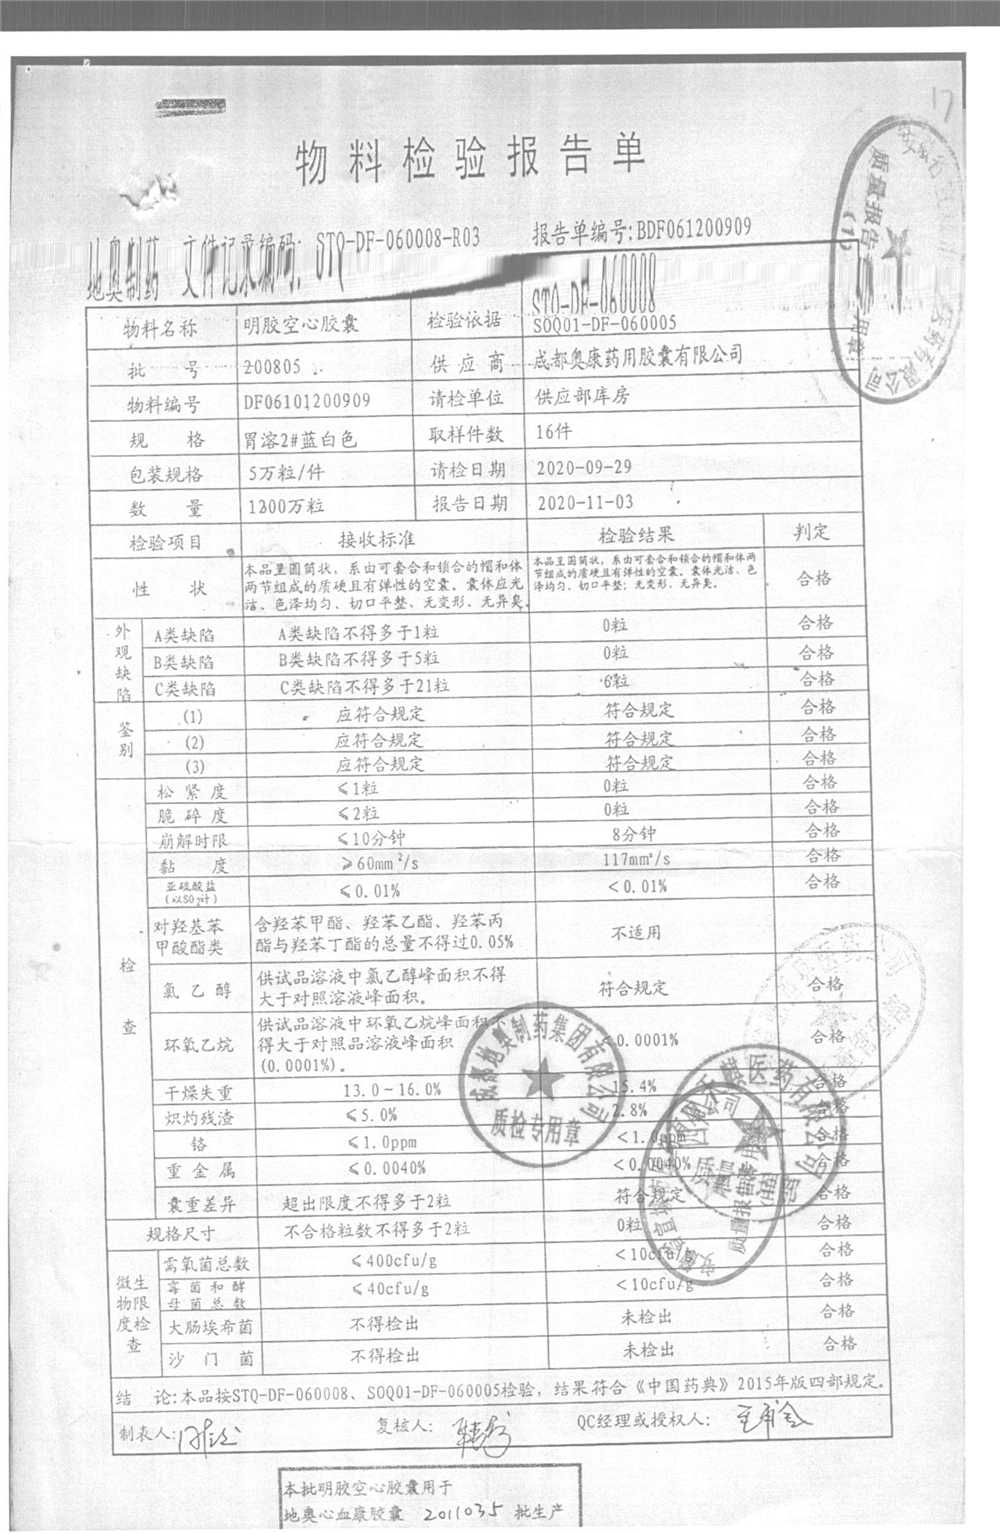 17
物料检验报告单
地奥制药 文件记录编码: STQ-DF-060008-R03 报告单编号:BDF061200909
物料名称 明胶空心胶囊 检验依据 STQ-DF-060008
SOQ01-DF-060005
批 号 200805 供应商 成都奥康药用胶囊有限公司
物料编号 DF06101200909 请检单位 供应部库房
规 格 胃溶2#蓝白色 取样件数 16件
包装规格 5万粒/件 请检日期 2020-09-29
数 量 1200万粒 报告日期 2020-11-03
检验项目 接收标准 检验结果 判定
性 状 本品呈圆筒状,系由可套合和锁合的帽和体两节组成的质硬且有弹性的空囊。囊体应光洁、色泽均匀、切口平整、无变形、无异臭。 本品呈圆筒状,系由可套合和锁合的帽和体两节组成的质硬且有弹性的空囊。囊体光洁、色泽均匀、切口平整;无变形、无异臭。 合格
外观缺陷 A类缺陷 A类缺陷不得多于1粒 0粒 合格
B类缺陷 B类缺陷不得多于5粒 0粒 合格
C类缺陷 C类缺陷不得多于21粒 6粒 合格
鉴别 (1) 应符合规定 符合规定 合格
(2) 应符合规定 符合规定 合格
(3) 应符合规定 符合规定 合格
检查 松紧度 ≤1粒 0粒 合格
脆碎度 ≤2粒 0粒 合格
崩解时限 ≤10分钟 8分钟 合格
黏 度 ≥60mm²/s 117mm²/s 合格
亚硫酸盐(以SO2计) ≤0.01% <0.01% 合格
对羟基苯甲酸酯类 含羟苯甲酯、羟苯乙酯、羟苯丙酯与羟苯丁酯的总量不得过0.05% 不适用
氯乙醇 供试品溶液中氯乙醇峰面积不得大于对照溶液峰面积。 符合规定 合格
环氧乙烷 供试品溶液中环氧乙烷峰面积不得大于对照品溶液峰面积(0.0001%)。 <0.0001% 合格
干燥失重 13.0~16.0% 15.4% 合格
炽灼残渣 ≤5.0% 2.8% 合格
铬 ≤1.0ppm <1.0ppm 合格
重金属 ≤0.0040% <0.0040% 合格
囊重差异 超出限度不得多于2粒 符合规定 合格
规格尺寸 不合格粒数不得多于2粒 0粒 合格
微生物限度检查 需氧菌总数 ≤400cfu/g <10cfu/g 合格
霉菌和酵母菌总数 ≤40cfu/g <10cfu/g 合格
大肠埃希菌 不得检出 未检出 合格
沙门菌 不得检出 未检出 合格
结 论:本品按STQ-DF-060008、SOQ01-DF-060005检验,结果符合《中国药典》2015年版四部规定。
制表人: 复核人: QC经理或授权人:
成都地奥制药集团有限公司
质检专用章
本批明胶空心胶囊用于
地奥心血康胶囊 2011035 批生产